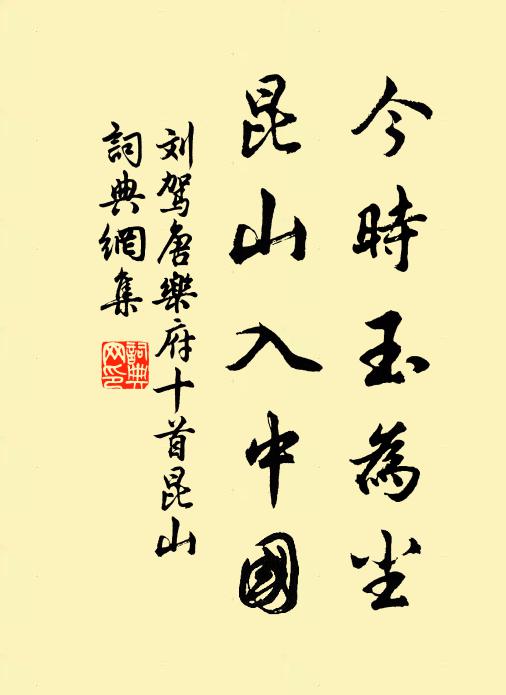 今時玉為尘
昆山入中國
刘驾唐樂府十首昆山
詞典網集
詞典网印